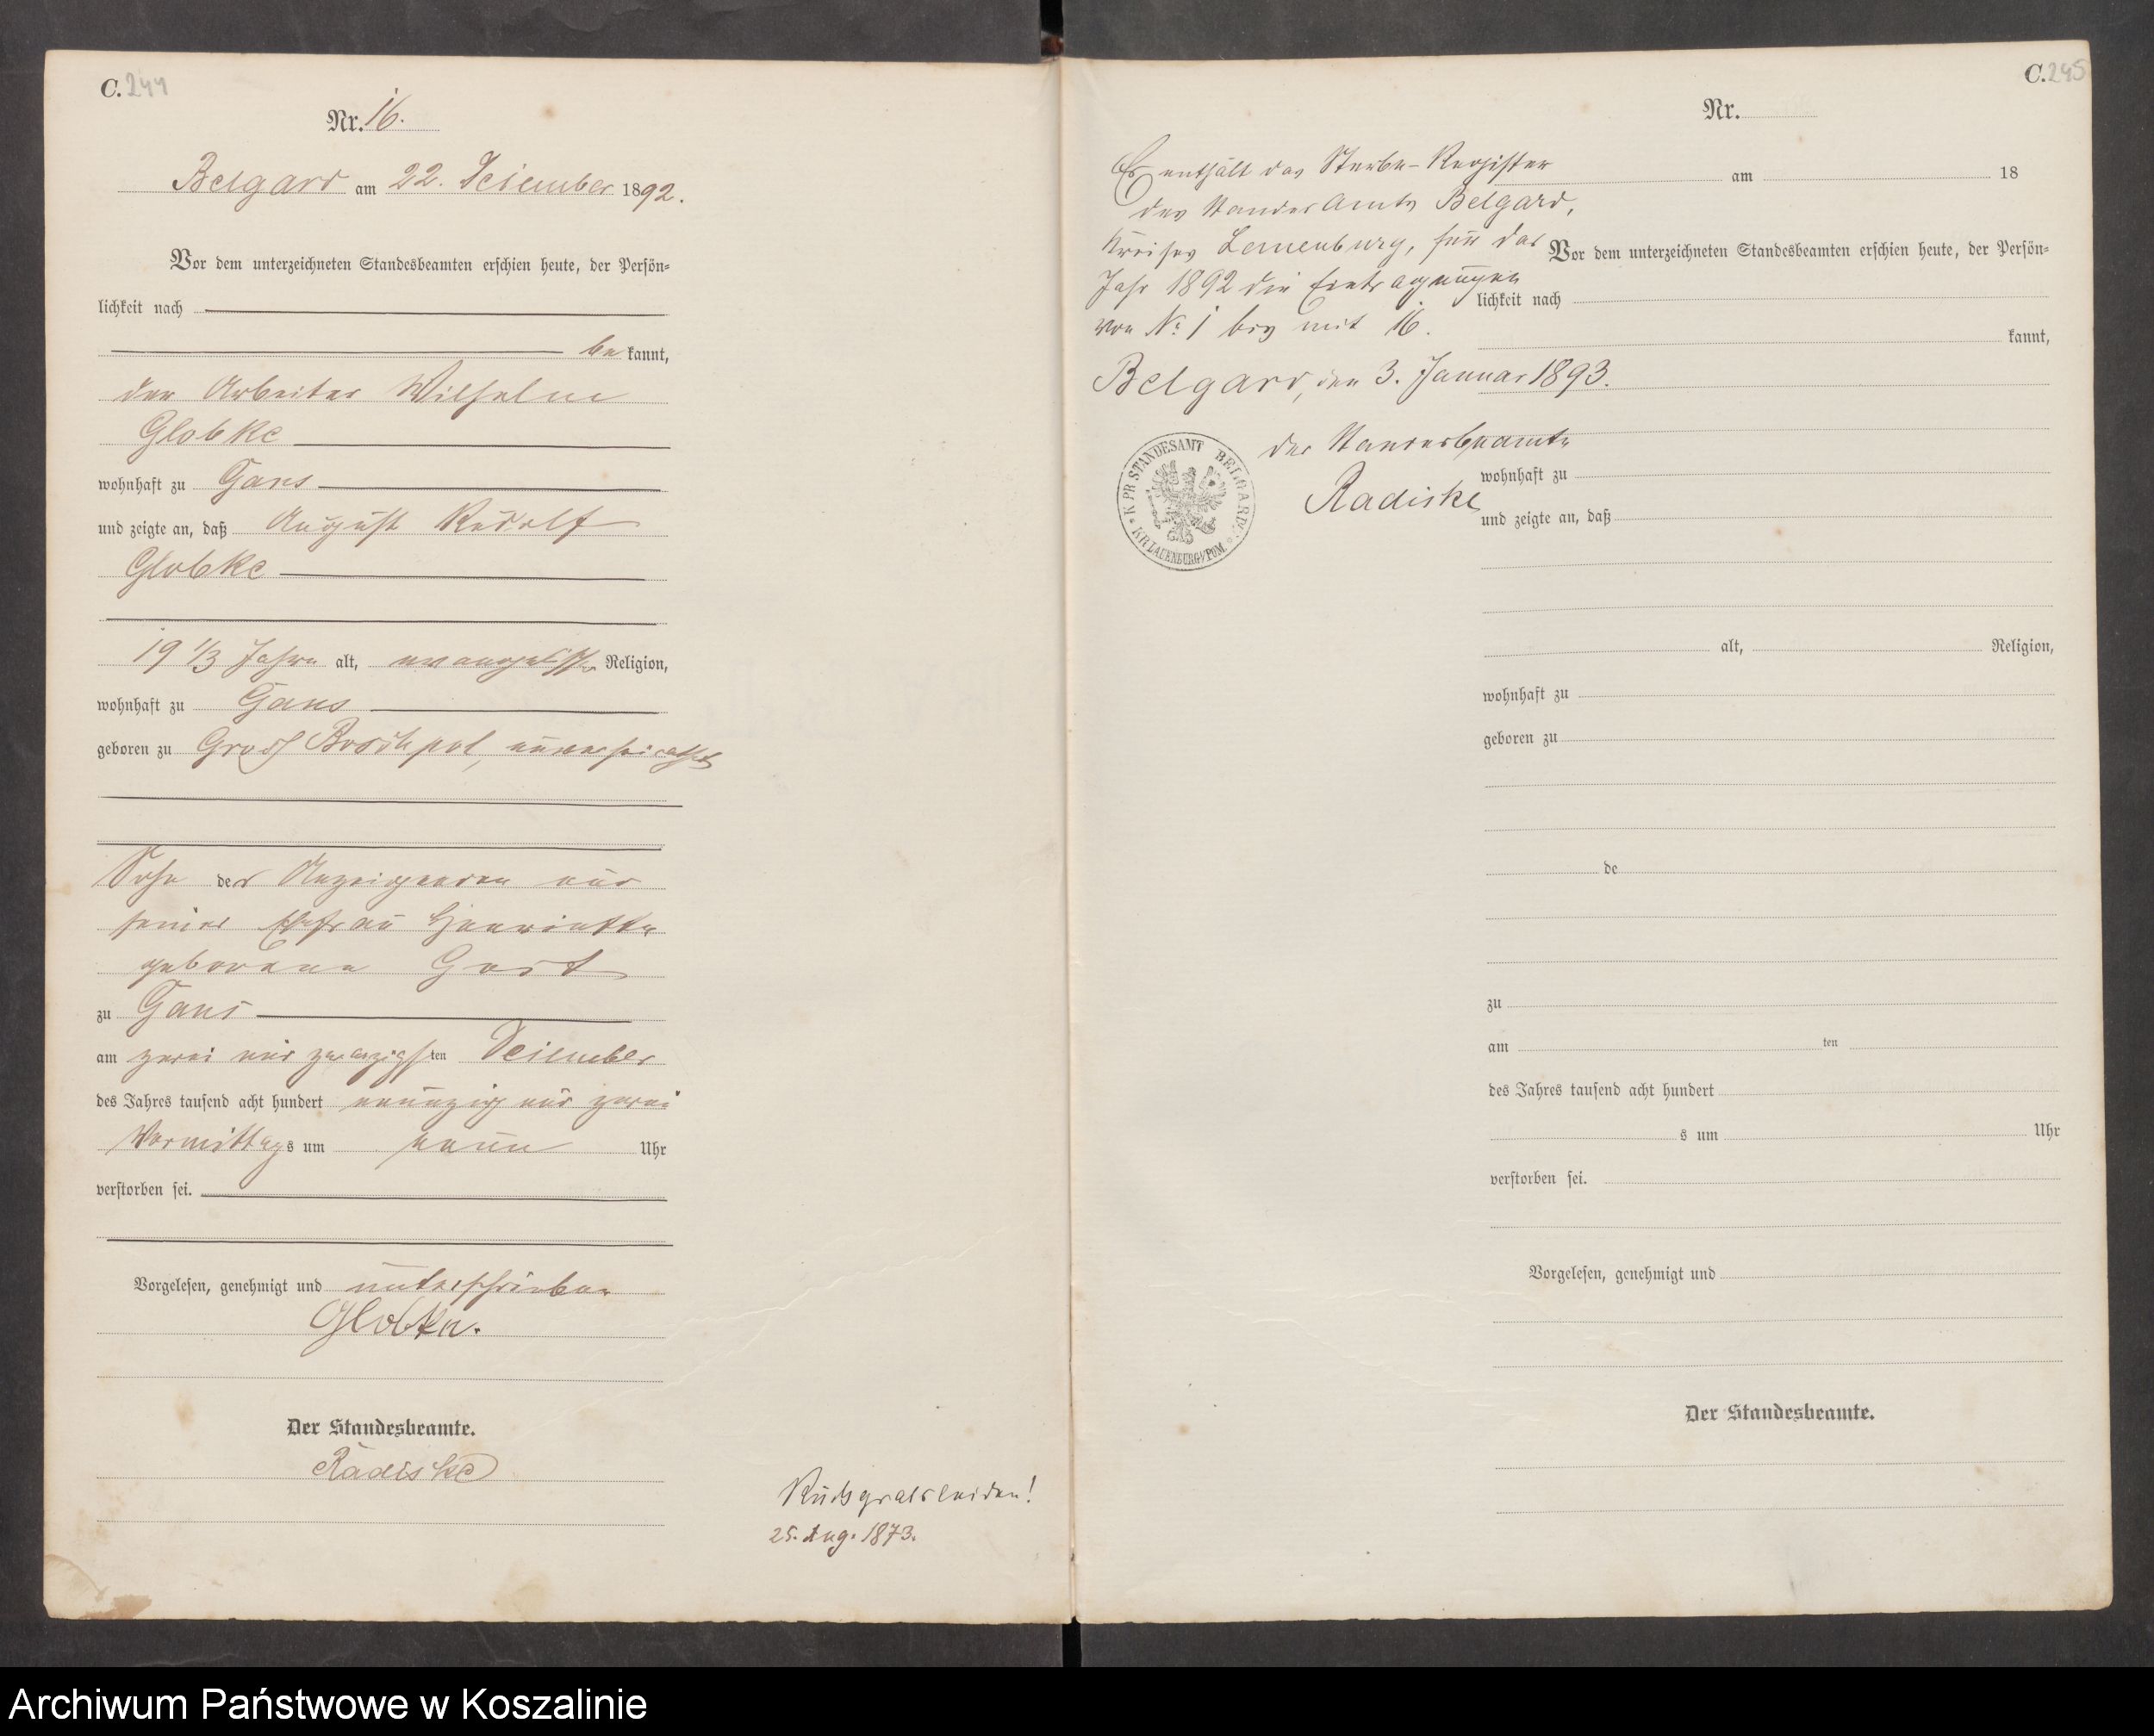 C. 244
Nr. 16.
Belgard am 22. Dezember 1892.
Vor dem unterzeichneten Standesbeamten erschien heute, der Persön-
lichkeit nach
be kannt,
der Arbeiter Wilhelm
Globke
wohnhaft zu Gans
und zeigte an, daß August Rudolf
Globke
19 1/3 Jahre alt, evangelischer Religion,
wohnhaft zu Gans
geboren zu Groß Boschpol, unverheirathet
Sohn des Anzeigenden und
seiner Ehefrau Henriette
geborene Gast
zu Gans
am zwei und zwanzigsten Dezember
des Jahres tausend acht hundert neunzig und zwei
Vormittags um neun Uhr
verstorben sei.
Vorgelesen, genehmigt und unterschrieben
Globke.
Der Standesbeamte.
Radiske
Rückgratsleiden!
25. Aug. 1873.
C. 245
Nr.
Es enthält das Sterbe-Register
des Standes Amts Belgard,
Kreises Lauenburg, für das
Jahr 1892 die Eintragungen
von No 1 bis mit 16.
Belgard, den 3. Januar 1893.
der Standesbeamte
Radiske
K PR STANDESAMT BELGARD
KR LAUENBURG I/POM.
am 18
Vor dem unterzeichneten Standesbeamten erschien heute, der Persön-
lichkeit nach
kannt,
wohnhaft zu
und zeigte an, daß
alt, Religion,
wohnhaft zu
geboren zu
de
zu
am ten
des Jahres tausend acht hundert
s um Uhr
verstorben sei.
Vorgelesen, genehmigt und
Der Standesbeamte.
Archiwum Państwowe w Koszalinie